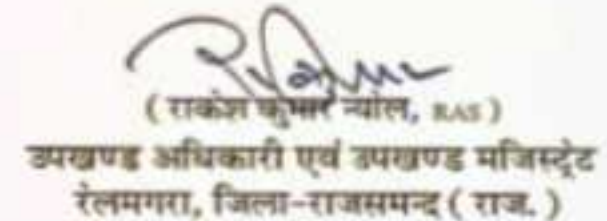 ( राकेश कुमार न्योल, RAS )
उपखण्ड अधिकारी एवं उपखण्ड मजिस्ट्रेट
रेलमगरा, जिला-राजसमन्द ( राज. )